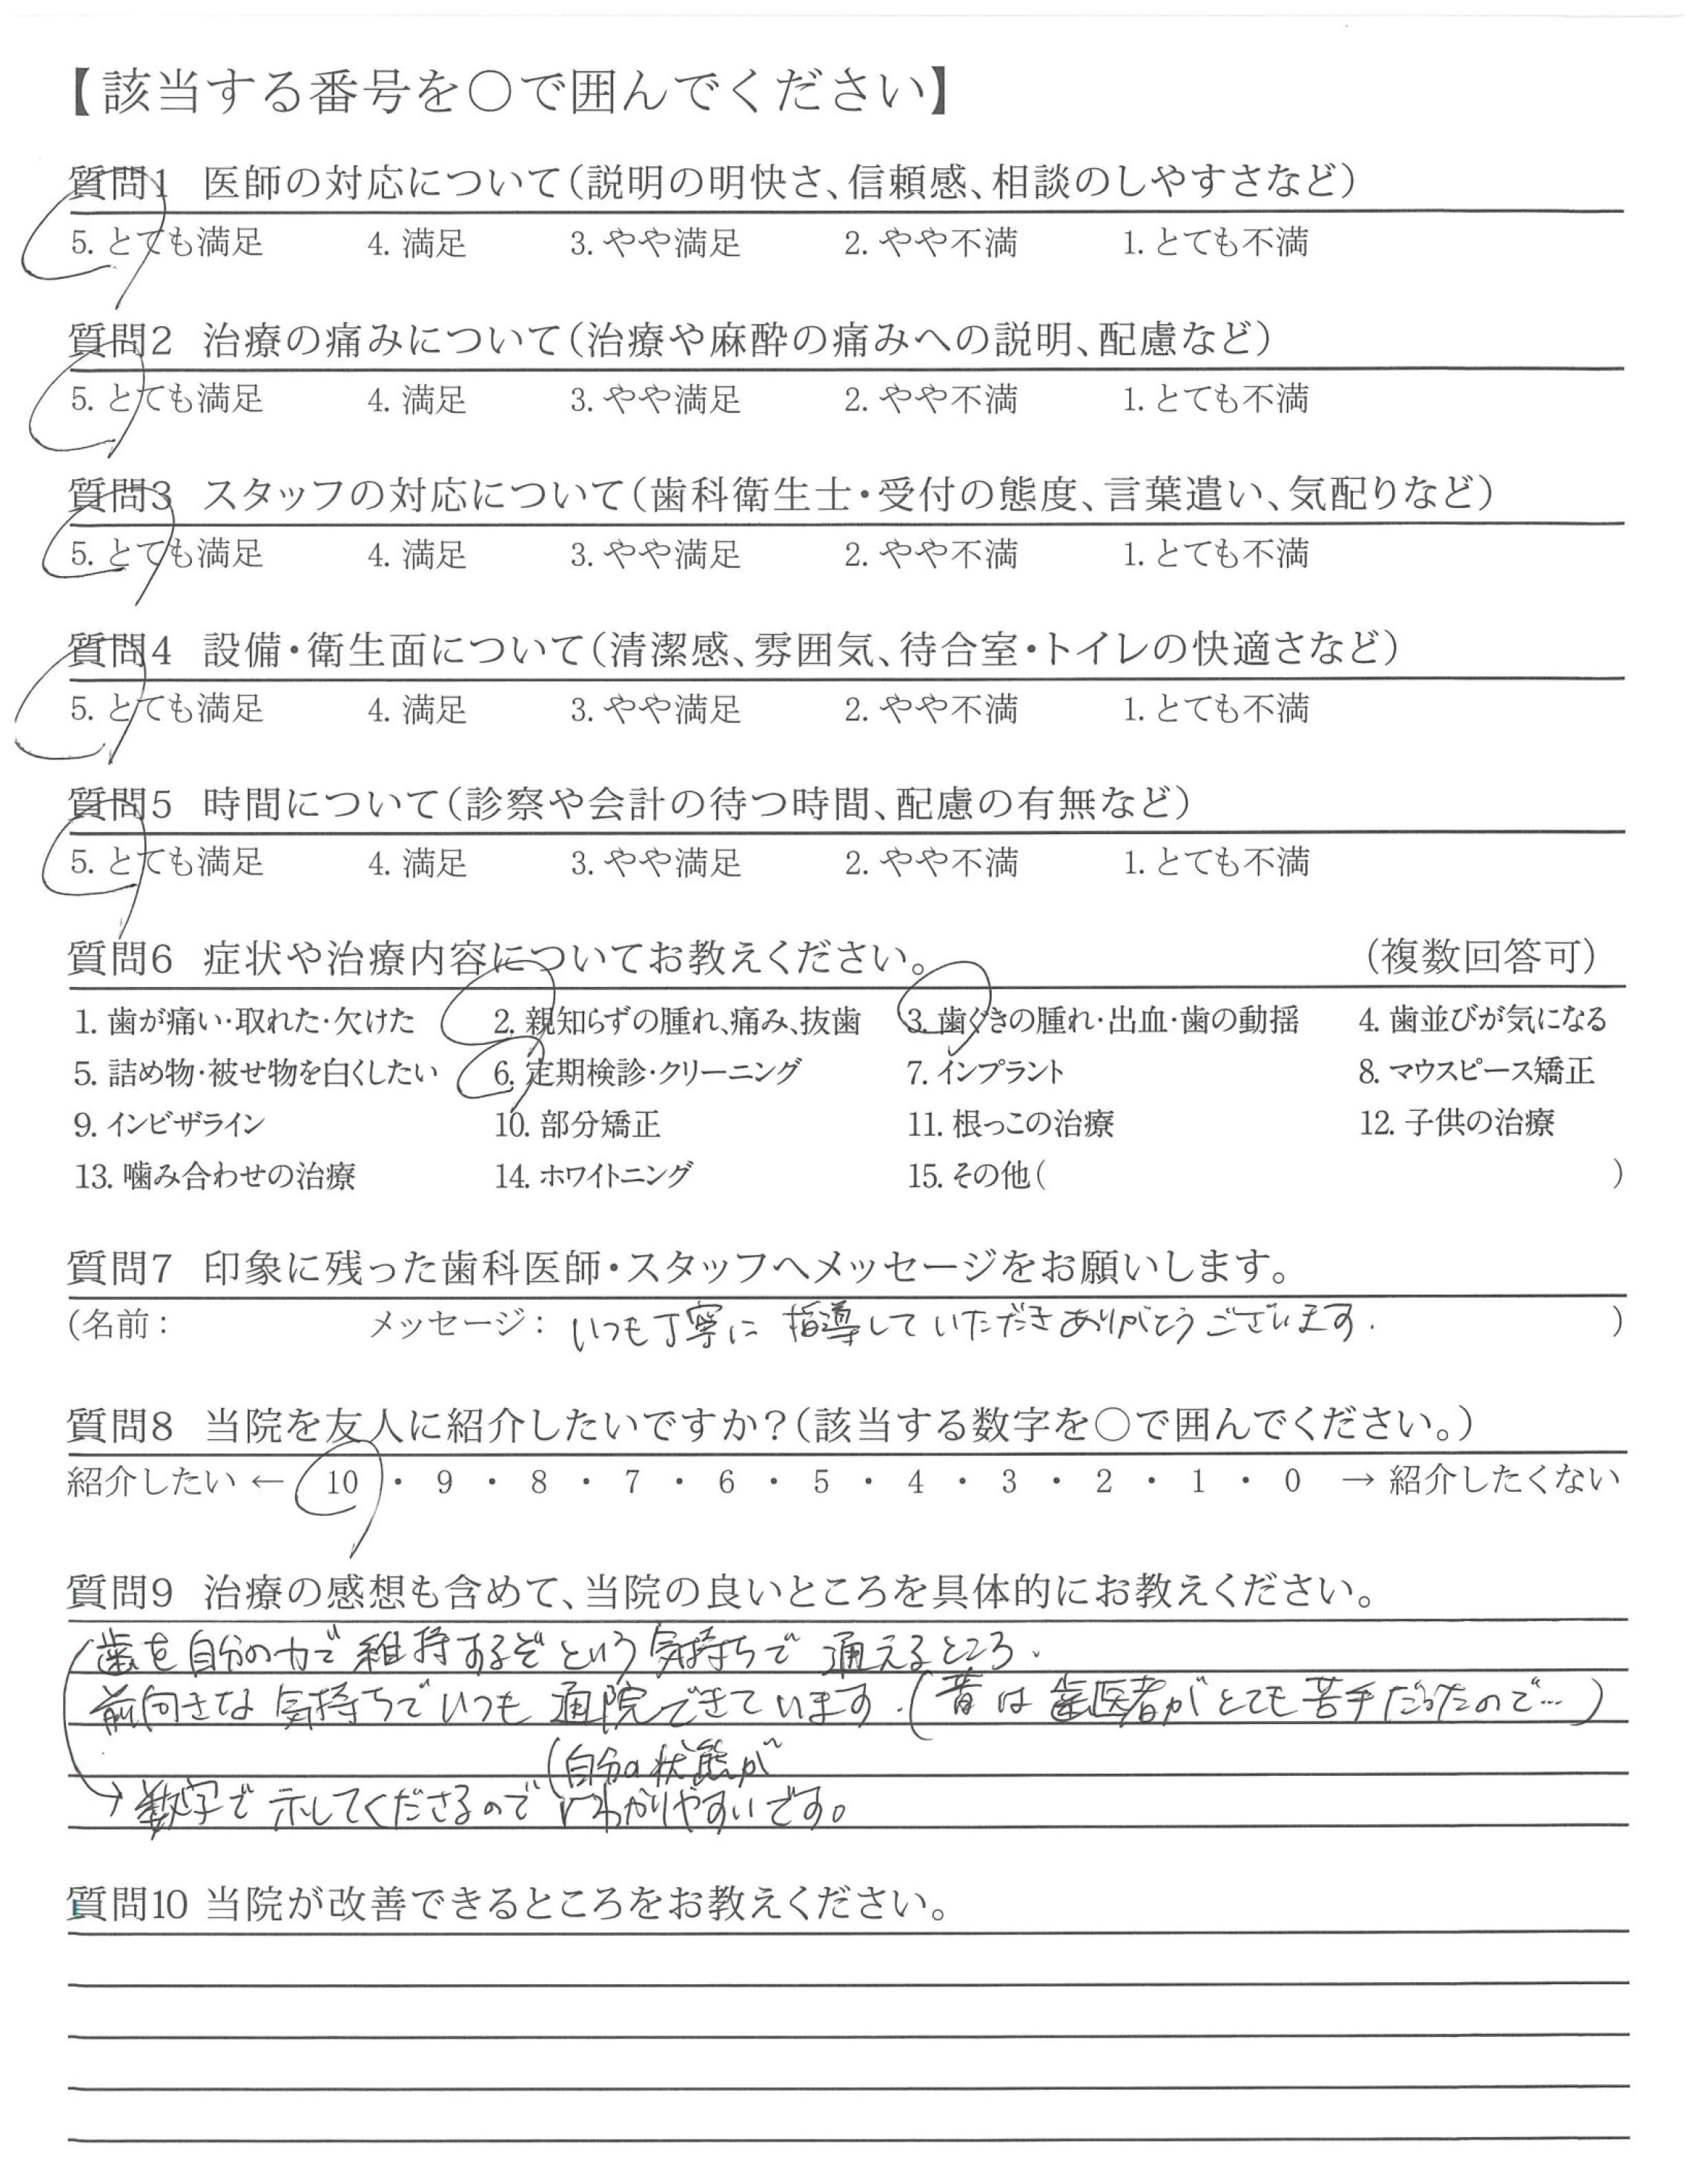 【該当する番号を○で囲んでください】
質問1 医師の対応について(説明の明快さ、信頼感、相談のしやすさなど)
5. とても満足 4. 満足 3. やや満足 2. やや不満 1. とても不満
質問2 治療の痛みについて(治療や麻酔の痛みへの説明、配慮など)
5. とても満足 4. 満足 3. やや満足 2. やや不満 1. とても不満
質問3 スタッフの対応について(歯科衛生士・受付の態度、言葉遣い、気配りなど)
5. とても満足 4. 満足 3. やや満足 2. やや不満 1. とても不満
質問4 設備・衛生面について(清潔感、雰囲気、待合室・トイレの快適さなど)
5. とても満足 4. 満足 3. やや満足 2. やや不満 1. とても不満
質問5 時間について(診察や会計の待つ時間、配慮の有無など)
5. とても満足 4. 満足 3. やや満足 2. やや不満 1. とても不満
質問6 症状や治療内容についてお教えください。 (複数回答可)
1. 歯が痛い・取れた・欠けた 2. 親知らずの腫れ、痛み、抜歯 3. 歯ぐきの腫れ・出血・歯の動揺 4. 歯並びが気になる
5. 詰め物・被せ物を白くしたい 6. 定期検診・クリーニング 7. インプラント 8. マウスピース矯正
9. インビザライン 10. 部分矯正 11. 根っこの治療 12. 子供の治療
13. 噛み合わせの治療 14. ホワイトニング 15. その他( )
質問7 印象に残った歯科医師・スタッフへメッセージをお願いします。
(名前: メッセージ: いつも丁寧に 指導して いただきありがとうございます. )
質問8 当院を友人に紹介したいですか?(該当する数字を○で囲んでください。)
紹介したい ← 10 ・ 9 ・ 8 ・ 7 ・ 6 ・ 5 ・ 4 ・ 3 ・ 2 ・ 1 ・ 0 → 紹介したくない
質問9 治療の感想も含めて、当院の良いところを具体的にお教えください。
歯を自分の力で維持するぞという気持ちで通えるところ.
前向きな気持ちでいつも通院できています.(昔は歯医者がとても苦手だったので…)
(自分の状態が
→数字で示してくださるので わかりやすいです。
質問10 当院が改善できるところをお教えください。